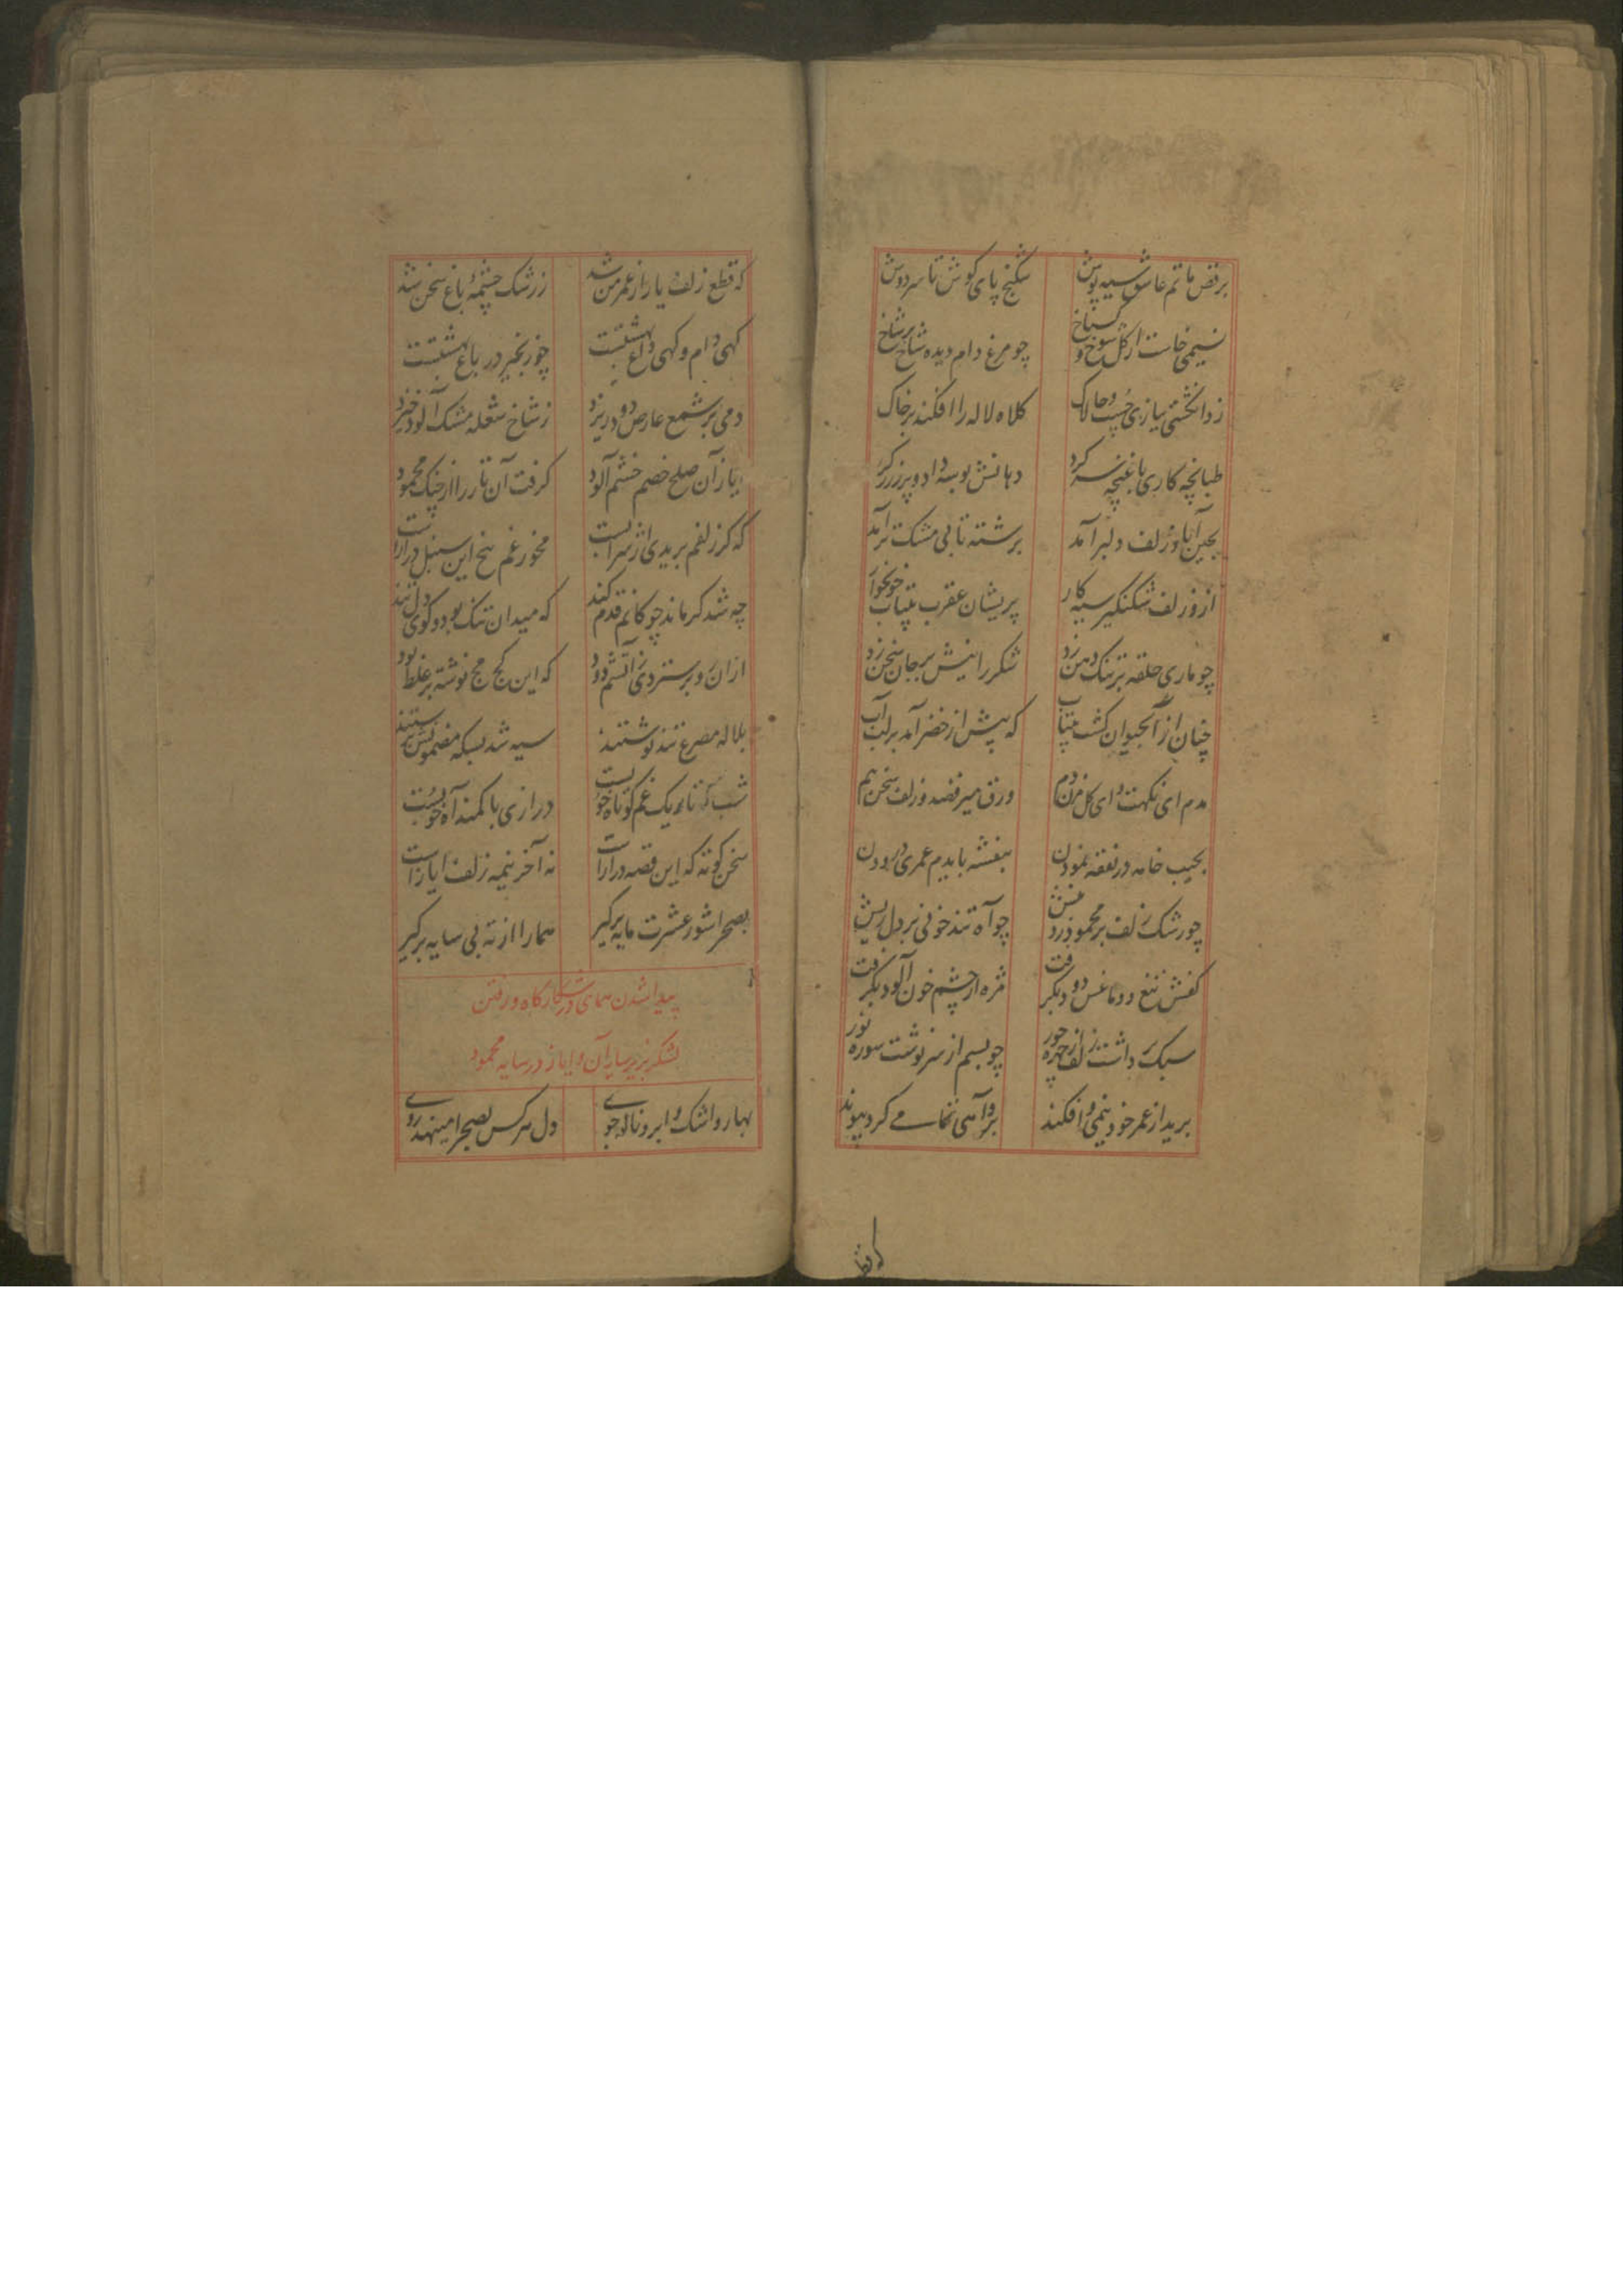 برقص ماتم عاشق سیه پوش
شکنج پای کوش تا سر دوش
نسیمی خاست از کل شوخ و کستاخ
چو مرغ دام دیده شاخ بر شاخ
زد انکشتی ببازی چست و چالاک
کلاه لاله را افکند بر خاک
طبانچه کاری با غنچه سر کرد
دهانش بوسه داد و پر ز زر کرد
بچین آباد زلف دلبر آمد
برشته تابی مشک تر آمد
ازو زلف شکنکیر سیه کار
پریشان عقرب بیتاب خونخوار
چو ماری حلقه بر تنک دهن زد
شکر را نیش بر جان سخن زد
چنان از آبحیوان کشت بیتاب
که پیش از خضر آمد بر لب آب
مدم ای نکهت و ای کل مزن دم
ورق میرقصد و زلف سخن هم
بجیب خامه در نغمه نمودن
بنفشه بایدم عمری درودن
چو رشک زلف بر محمود زد نیش
چو آه تند خونی بر دل ریش
کفش تیغ و دماغش دود بکرفت
مژه از چشم خون آلود بکرفت
سبک برداشت زلف از چهره حور
چو بسم از سرنوشت سوره نور
برید از عمر خود نیمی و افکند
برو آهی تمامی کرد پیوند
که قطع
که قطع زلف یار از عمر من شد
ز رشک چشمهٔ باغ سخن شد
کهی دام و کهی داغ بهشتست
چو زنجیر در باغ بهشتست
دمی بر شمع عارض دود ریزد
ز شاخ شعله مشک آلود خیزد
ایاز آن صلح خصم خشم آلود
کرفت آن تار را از چنک محمود
که کر زلفم بریدی از سر است
مخور غم بیخ این سنبل دراز است
چه شد کر ماند چوکانم قدم کند
که میدان تنک بود و کوی دل تند
از آن رو بر سترد ز آتشم دود
که این کج مج نوشته بر غلط بود
بلاله مصرع تند نوشتند
سیه شد بسکه مضمونش
شب تاریک غم کوتاه خوبست
درازی با کمند آه خوبست
سخن کوته که این قصه درازست
نه آخر نیمه زلف ایازست
بصحرا شور عشرت مایه برکیر
هما را از ته بی سایه برکیر
پیدا شدن همای در شکارکاه و رفتن
لشکر بزیر سایه آن و ایاز در سایه محمود
بهار و اشک و ابر و ناله جوی
دل هر کس بصحرا مینهد روی